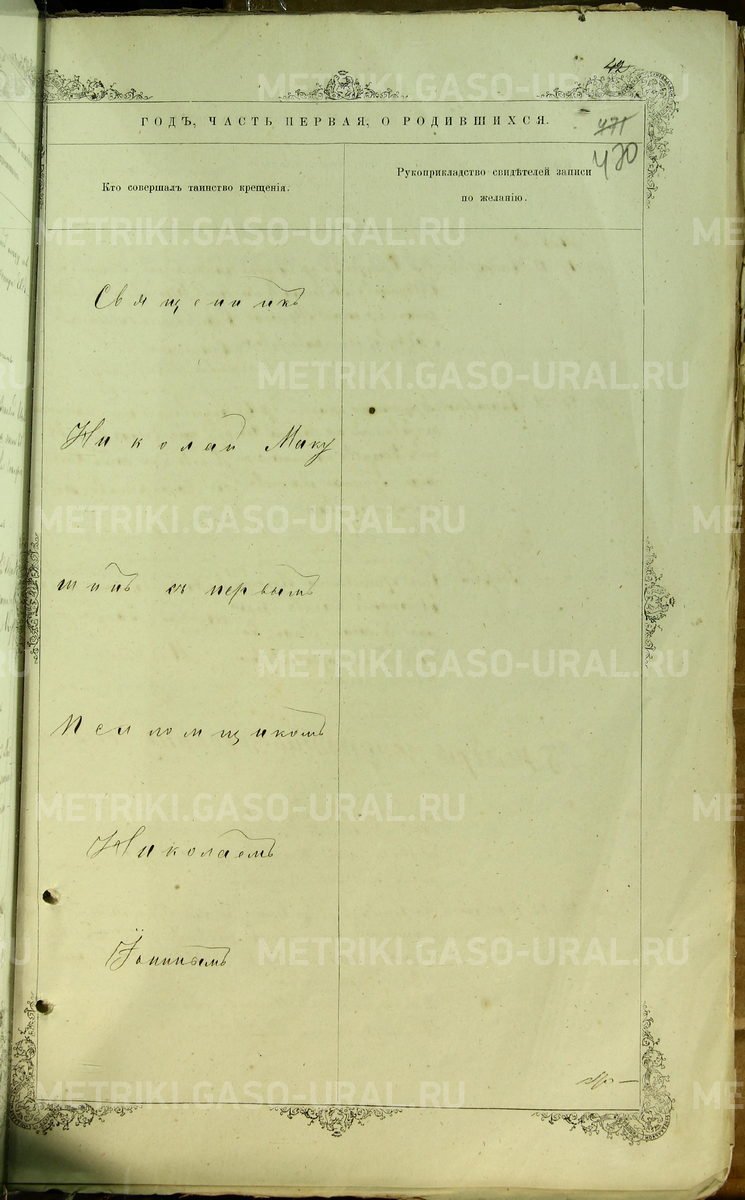 42
ГОДЪ, ЧАСТЬ ПЕРВАЯ, О РОДИВШИХСЯ.
471
420
Кто совершалъ таинство крещенія.
Рукоприкладство свидѣтелей записи
по желанію.
Священникъ
Николай Маку
шинъ съ первымъ
Псаломщикомъ
Николаемъ
METRIKI.GASO-URAL.RU
METRIKI.GASO-URAL.RU
METRIKI.GASO-URAL.RU
METRIKI.GASO-URAL.RU
METRIKI.GASO-URAL.RU
METRIKI.GASO-URAL.RU
METRIKI.GASO-URAL.RU
METRIKI.GASO-URAL.RU